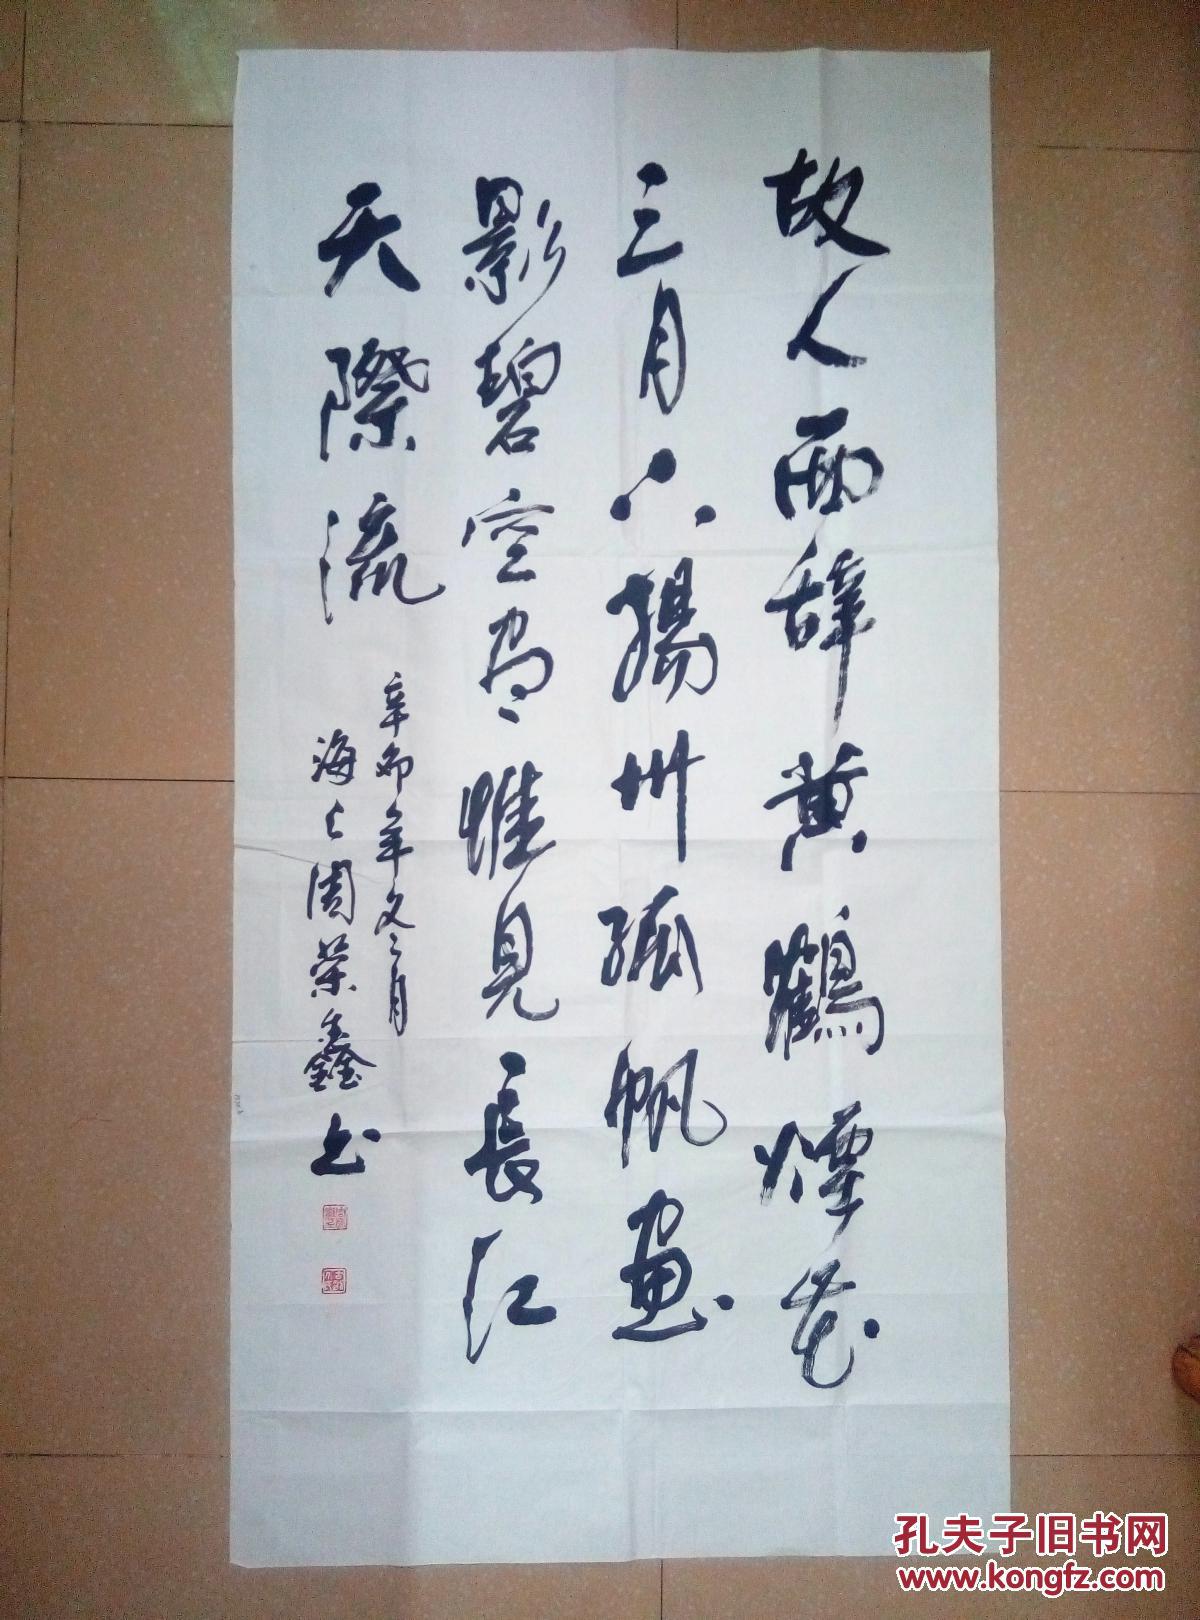 故人西辞黄鶴煙花
三月下揚州孤帆遠
影碧空尽惟見長江
天際流
辛卯年冬月
海上周荣鑫书
孔夫子旧书网
www.kongfz.com